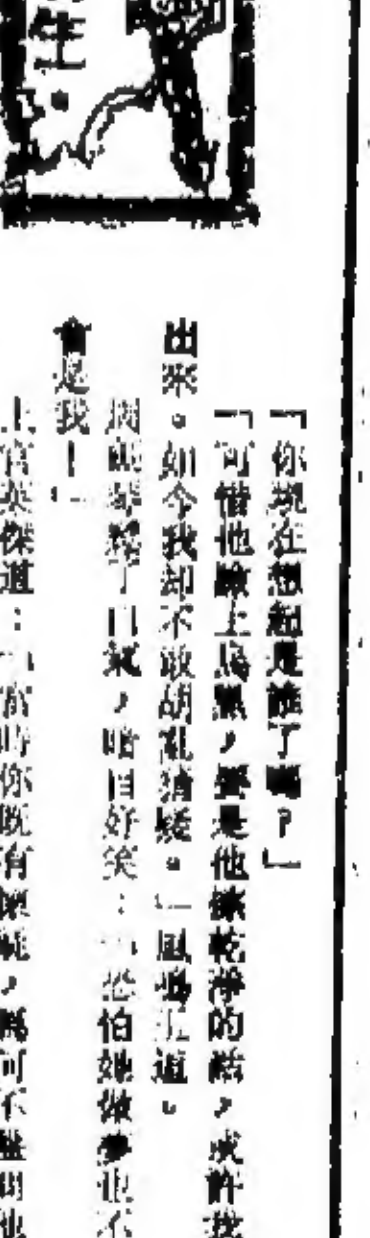 「你現在想起是誰了嗎？」
「可惜他臉上烏黑，要是他擦乾淨的話，或許我
出來。如今我却不敢胡亂猜疑。」鳳鳴玉道。
了口氣，暗自好笑：「恐怕她做夢也不
會是我！」
上官英傑道：「當時你既有懷疑，何不盤問他
生。